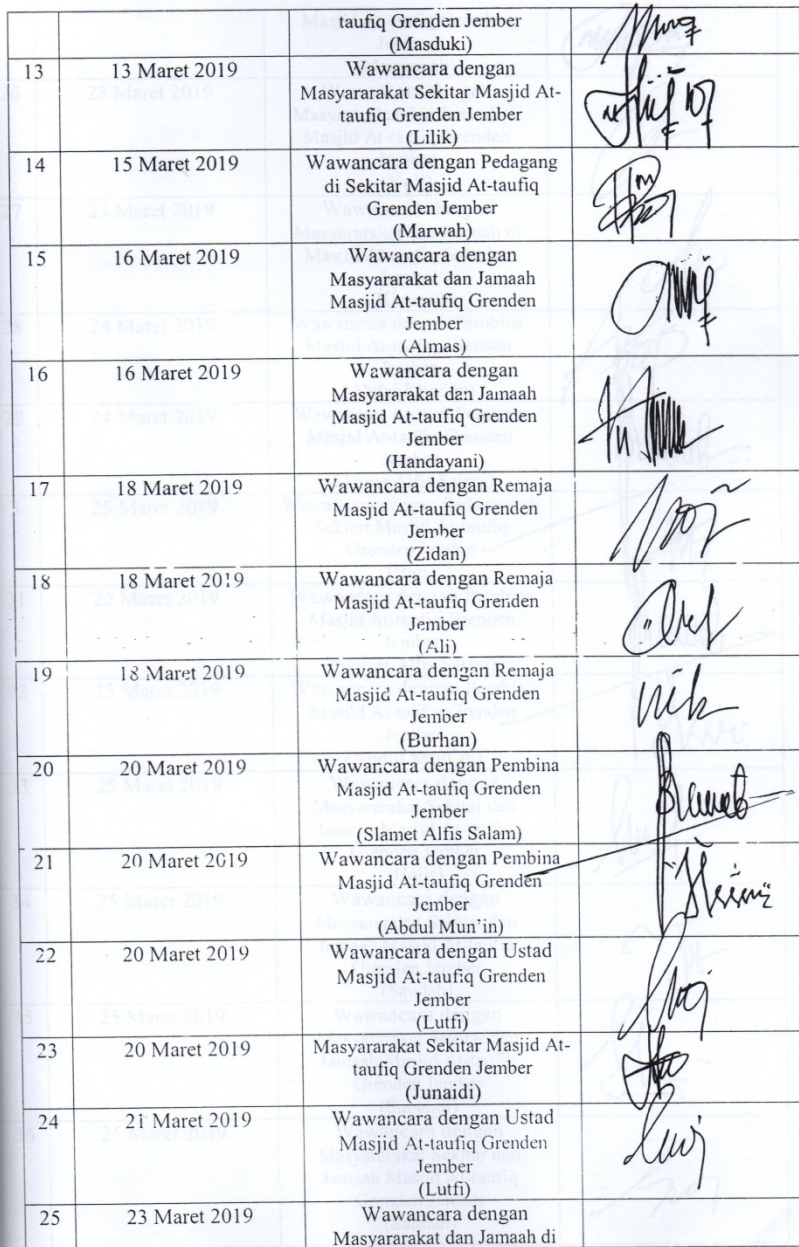 taufiq Grenden Jember
(Masduki)
13 13 Maret 2019 Wawancara dengan
Masyararakat Sekitar Masjid At-
taufiq Grenden Jember
(Lilik)
14 15 Maret 2019 Wawancara dengan Pedagang
di Sekitar Masjid At-taufiq
Grenden Jember
(Marwah)
15 16 Maret 2019 Wawancara dengan
Masyararakat dan Jamaah
Masjid At-taufiq Grenden
Jember
(Almas)
16 16 Maret 2019 Wawancara dengan
Masyararakat dan Jamaah
Masjid At-taufiq Grenden
Jember
(Handayani)
17 18 Maret 2019 Wawancara dengan Remaja
Masjid At-taufiq Grenden
Jember
(Zidan)
18 18 Maret 2019 Wawancara dengan Remaja
Masjid At-taufiq Grenden
Jember
(Ali)
19 18 Maret 2019 Wawancara dengan Remaja
Masjid At-taufiq Grenden
Jember
(Burhan)
20 20 Maret 2019 Wawancara dengan Pembina
Masjid At-taufiq Grenden
Jember
(Slamet Alfis Salam)
21 20 Maret 2019 Wawancara dengan Pembina
Masjid At-taufiq Grenden
Jember
(Abdul Mun'in)
22 20 Maret 2019 Wawancara dengan Ustad
Masjid At-taufiq Grenden
Jember
(Lutfi)
23 20 Maret 2019 Masyararakat Sekitar Masjid At-
taufiq Grenden Jember
(Junaidi)
24 21 Maret 2019 Wawancara dengan Ustad
Masjid At-taufiq Grenden
Jember
(Lutfi)
25 23 Maret 2019 Wawancara dengan
Masyararakat dan Jamaah di